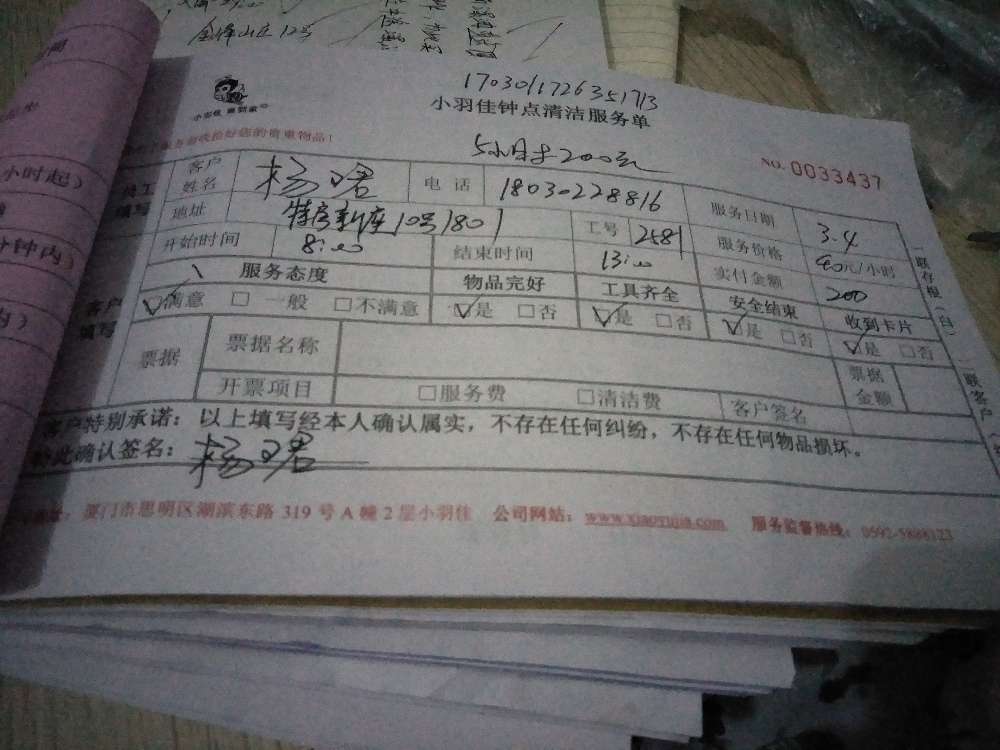 17030117263517​13
小羽佳钟点清洁服务单
5小时200元
NO. 0033437
客户姓名 杨珺 电话 18030228816 服务日期 3.4
地址 特房新座10号1801 工号 2581 服务价格 40元/小时
开始时间 8:00 结束时间 13:00 实付金额 200
服务态度 物品完好 工具齐全 安全结束 收到卡片
☑满意 □一般 □不满意 ☑是 □否 ☑是 □否 ☑是 □否 ☑是 □否
票据 票据名称 票据金额
开票项目 □服务费 □清洁费 客户签名
客户特别承诺：以上填写经本人确认属实，不存在任何纠纷，不存在任何物品损坏。
特此确认签名：杨珺
厦门市思明区湖滨东路 319 号 A 幢 2 层小羽佳 公司网站：www.xiaoyujia.com 服务监督热线：0592-5888123